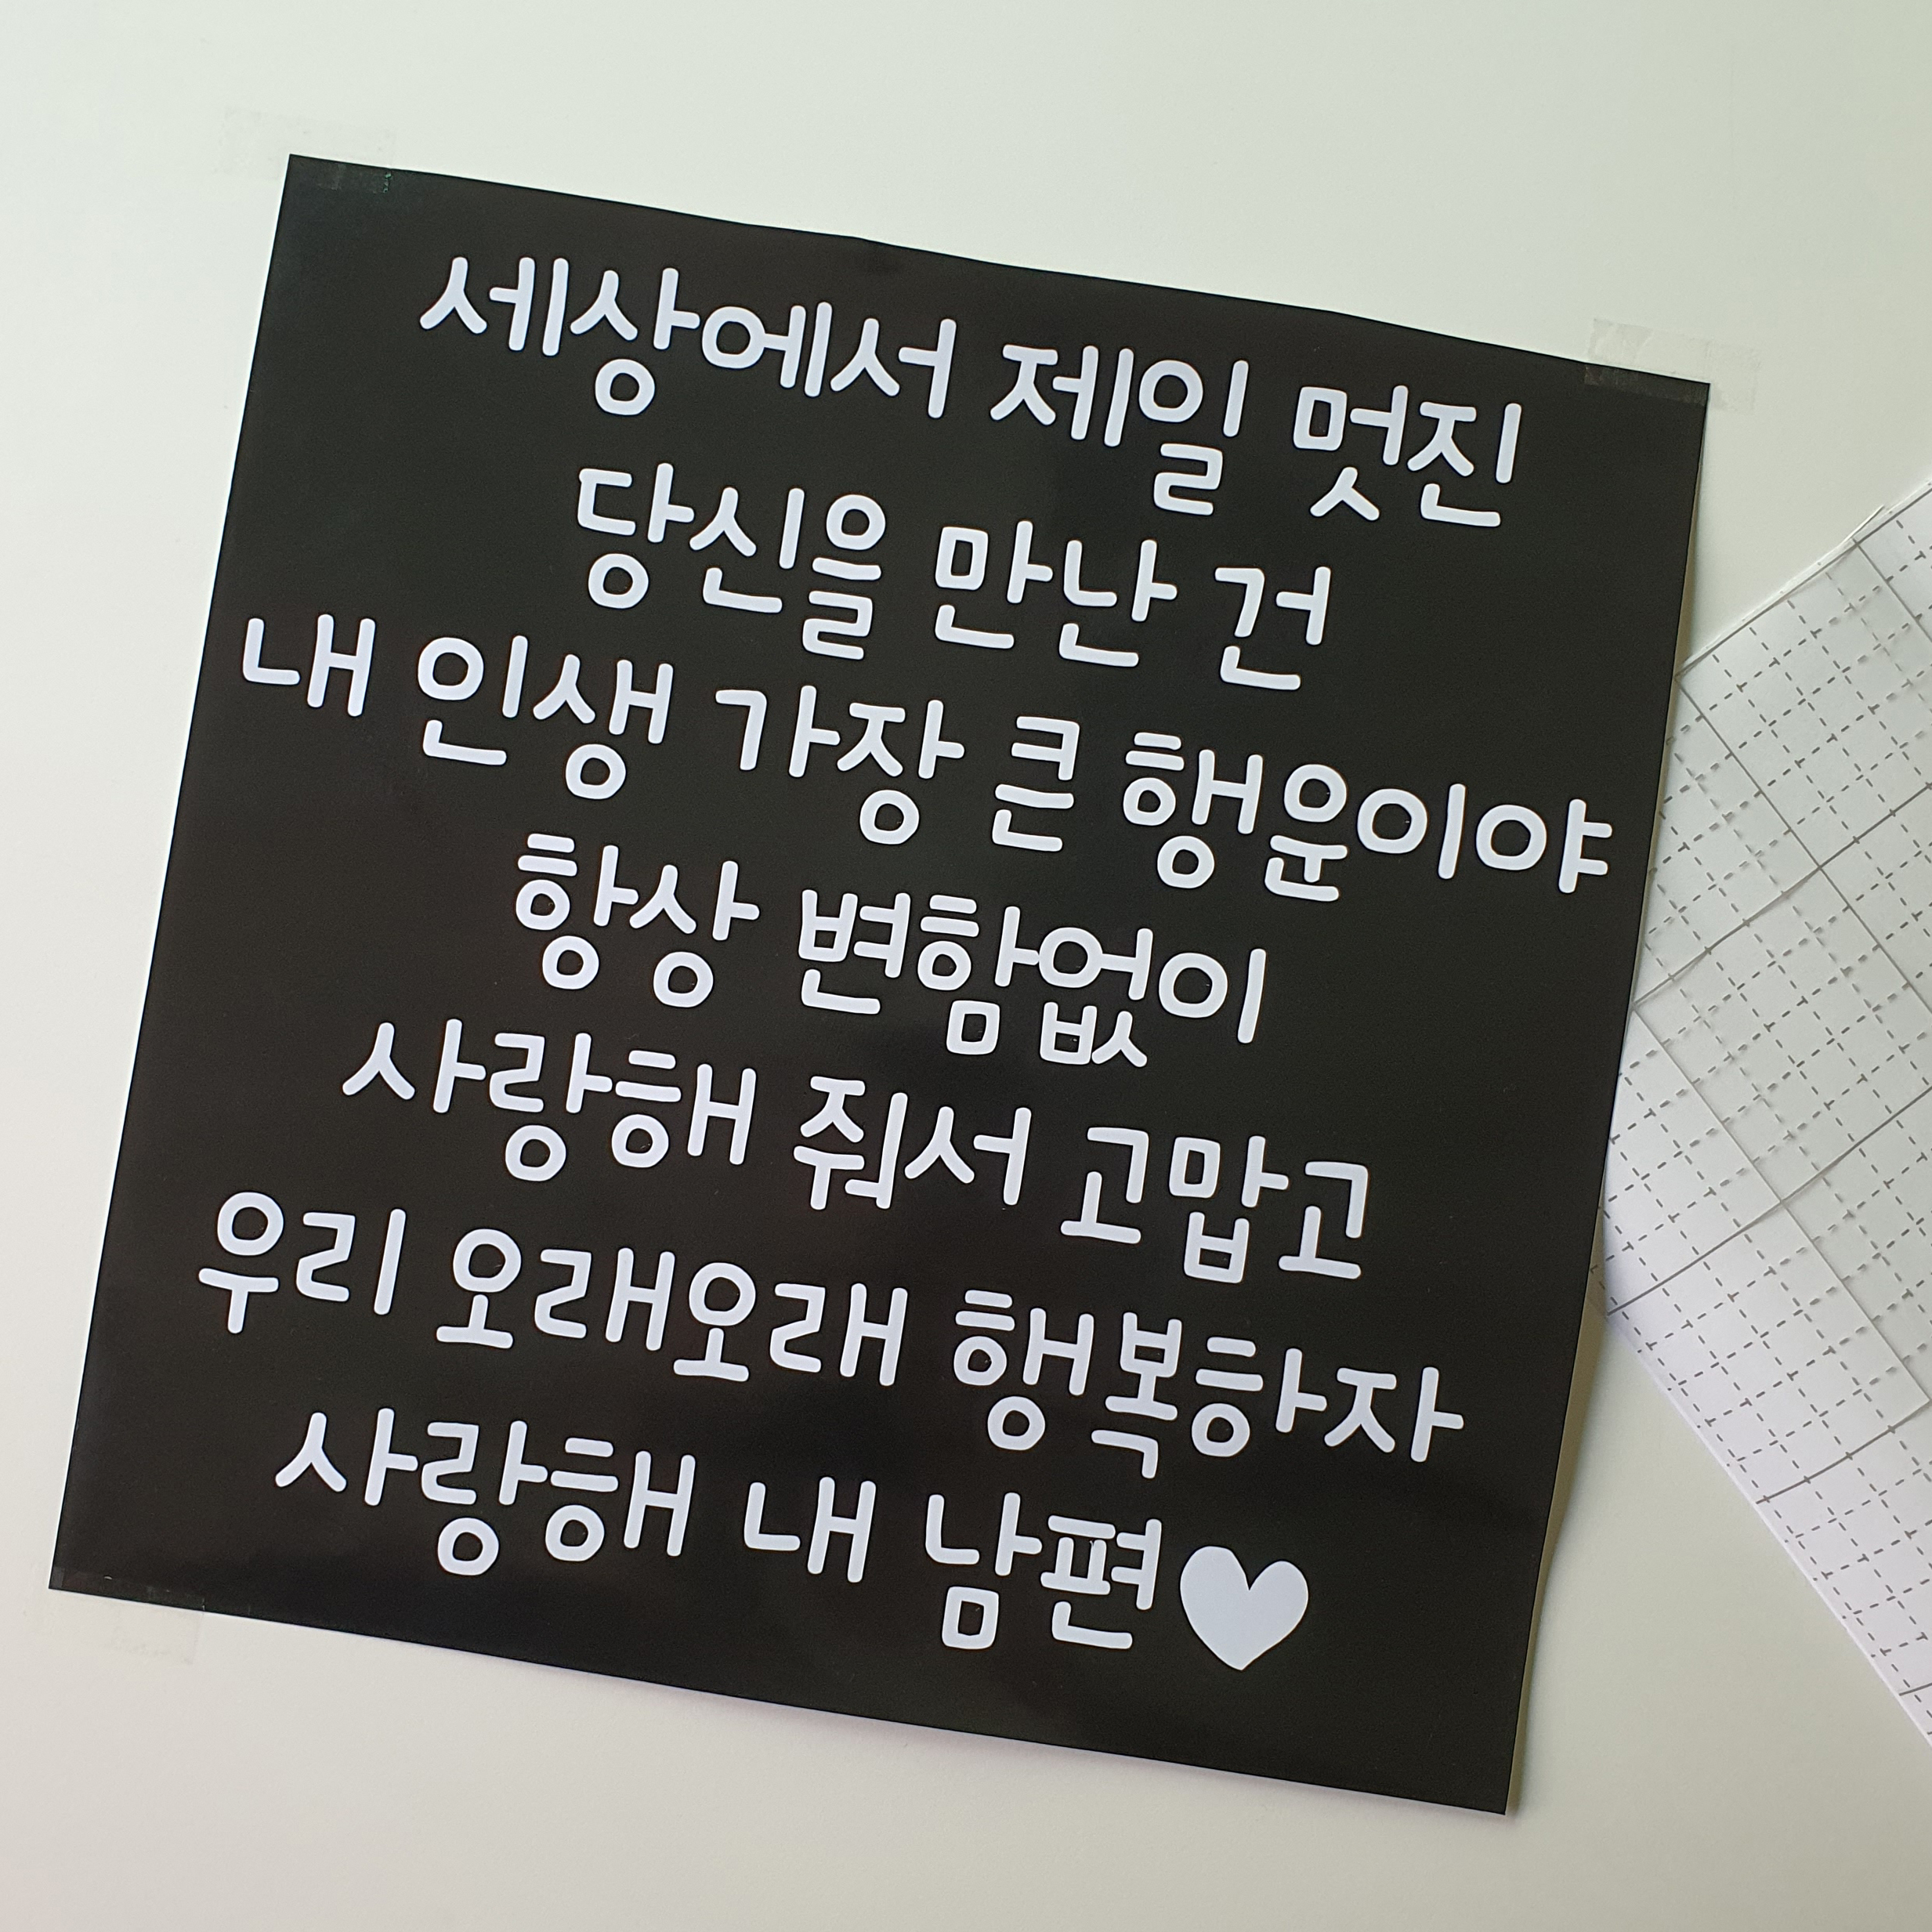 세상에서 제일 멋진
당신을 만난 건
내 인생 가장 큰 행운이야
항상 변함없이
사랑해 줘서 고맙고
우리 오래오래 행복하자
사랑해 내 남편♥